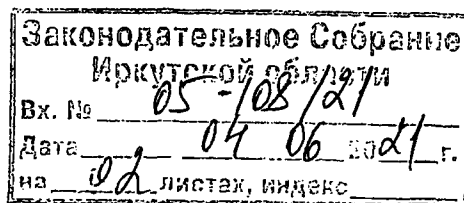 Законодательное Собрание
Иркутской области
Вх. № 05-/08/21
Дата 04 06 2021 г.
на 02 листах, индекс